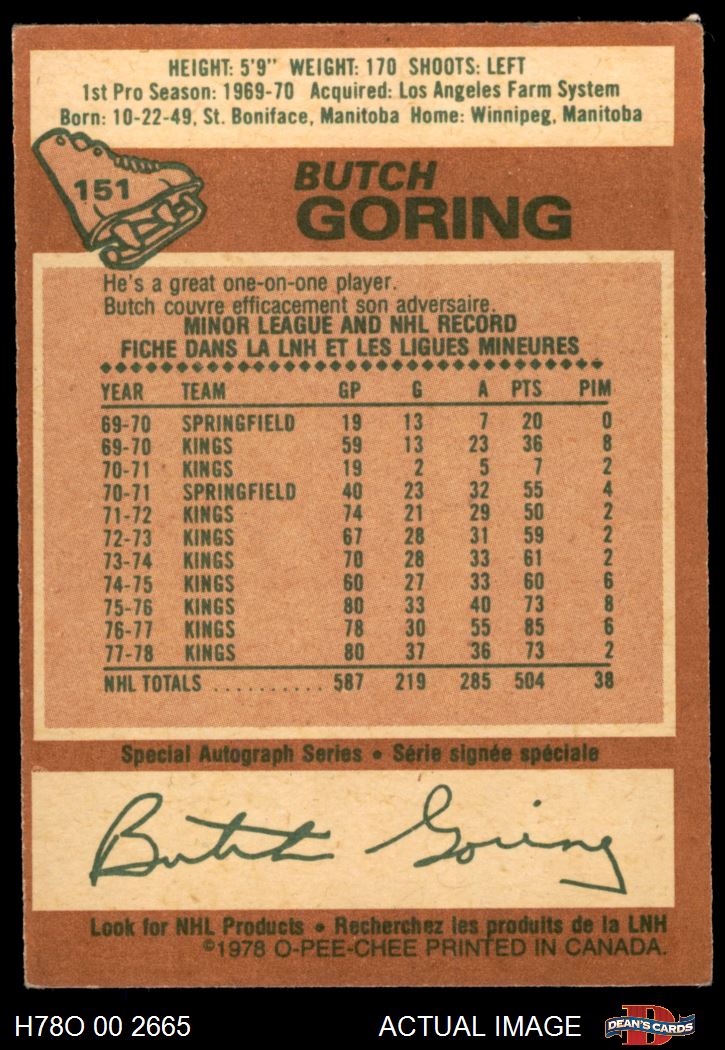 HEIGHT: 5'9" WEIGHT: 170 SHOOTS: LEFT
1st Pro Season: 1969-70 Acquired: Los Angeles Farm System
Born: 10-22-49, St. Boniface, Manitoba Home: Winnipeg, Manitoba
151
BUTCH
GORING
He's a great one-on-one player.
Butch couvre efficacement son adversaire.
MINOR LEAGUE AND NHL RECORD
FICHE DANS LA LNH ET LES LIGUES MINEURES
YEAR TEAM GP G A PTS PIM
69-70 SPRINGFIELD 19 13 7 20 0
69-70 KINGS 59 13 23 36 8
70-71 KINGS 19 2 5 7 2
70-71 SPRINGFIELD 40 23 32 55 4
71-72 KINGS 74 21 29 50 2
72-73 KINGS 67 28 31 59 2
73-74 KINGS 70 28 33 61 2
74-75 KINGS 60 27 33 60 6
75-76 KINGS 80 33 40 73 8
76-77 KINGS 78 30 55 85 6
77-78 KINGS 80 37 36 73 2
NHL TOTALS .......... 587 219 285 504 38
Special Autograph Series • Série signée spéciale
Butch Goring
Look for NHL Products • Recherchez les produits de la LNH
©1978 O-PEE-CHEE PRINTED IN CANADA.
H78O 00 2665 ACTUAL IMAGE D DEAN'S CARDS